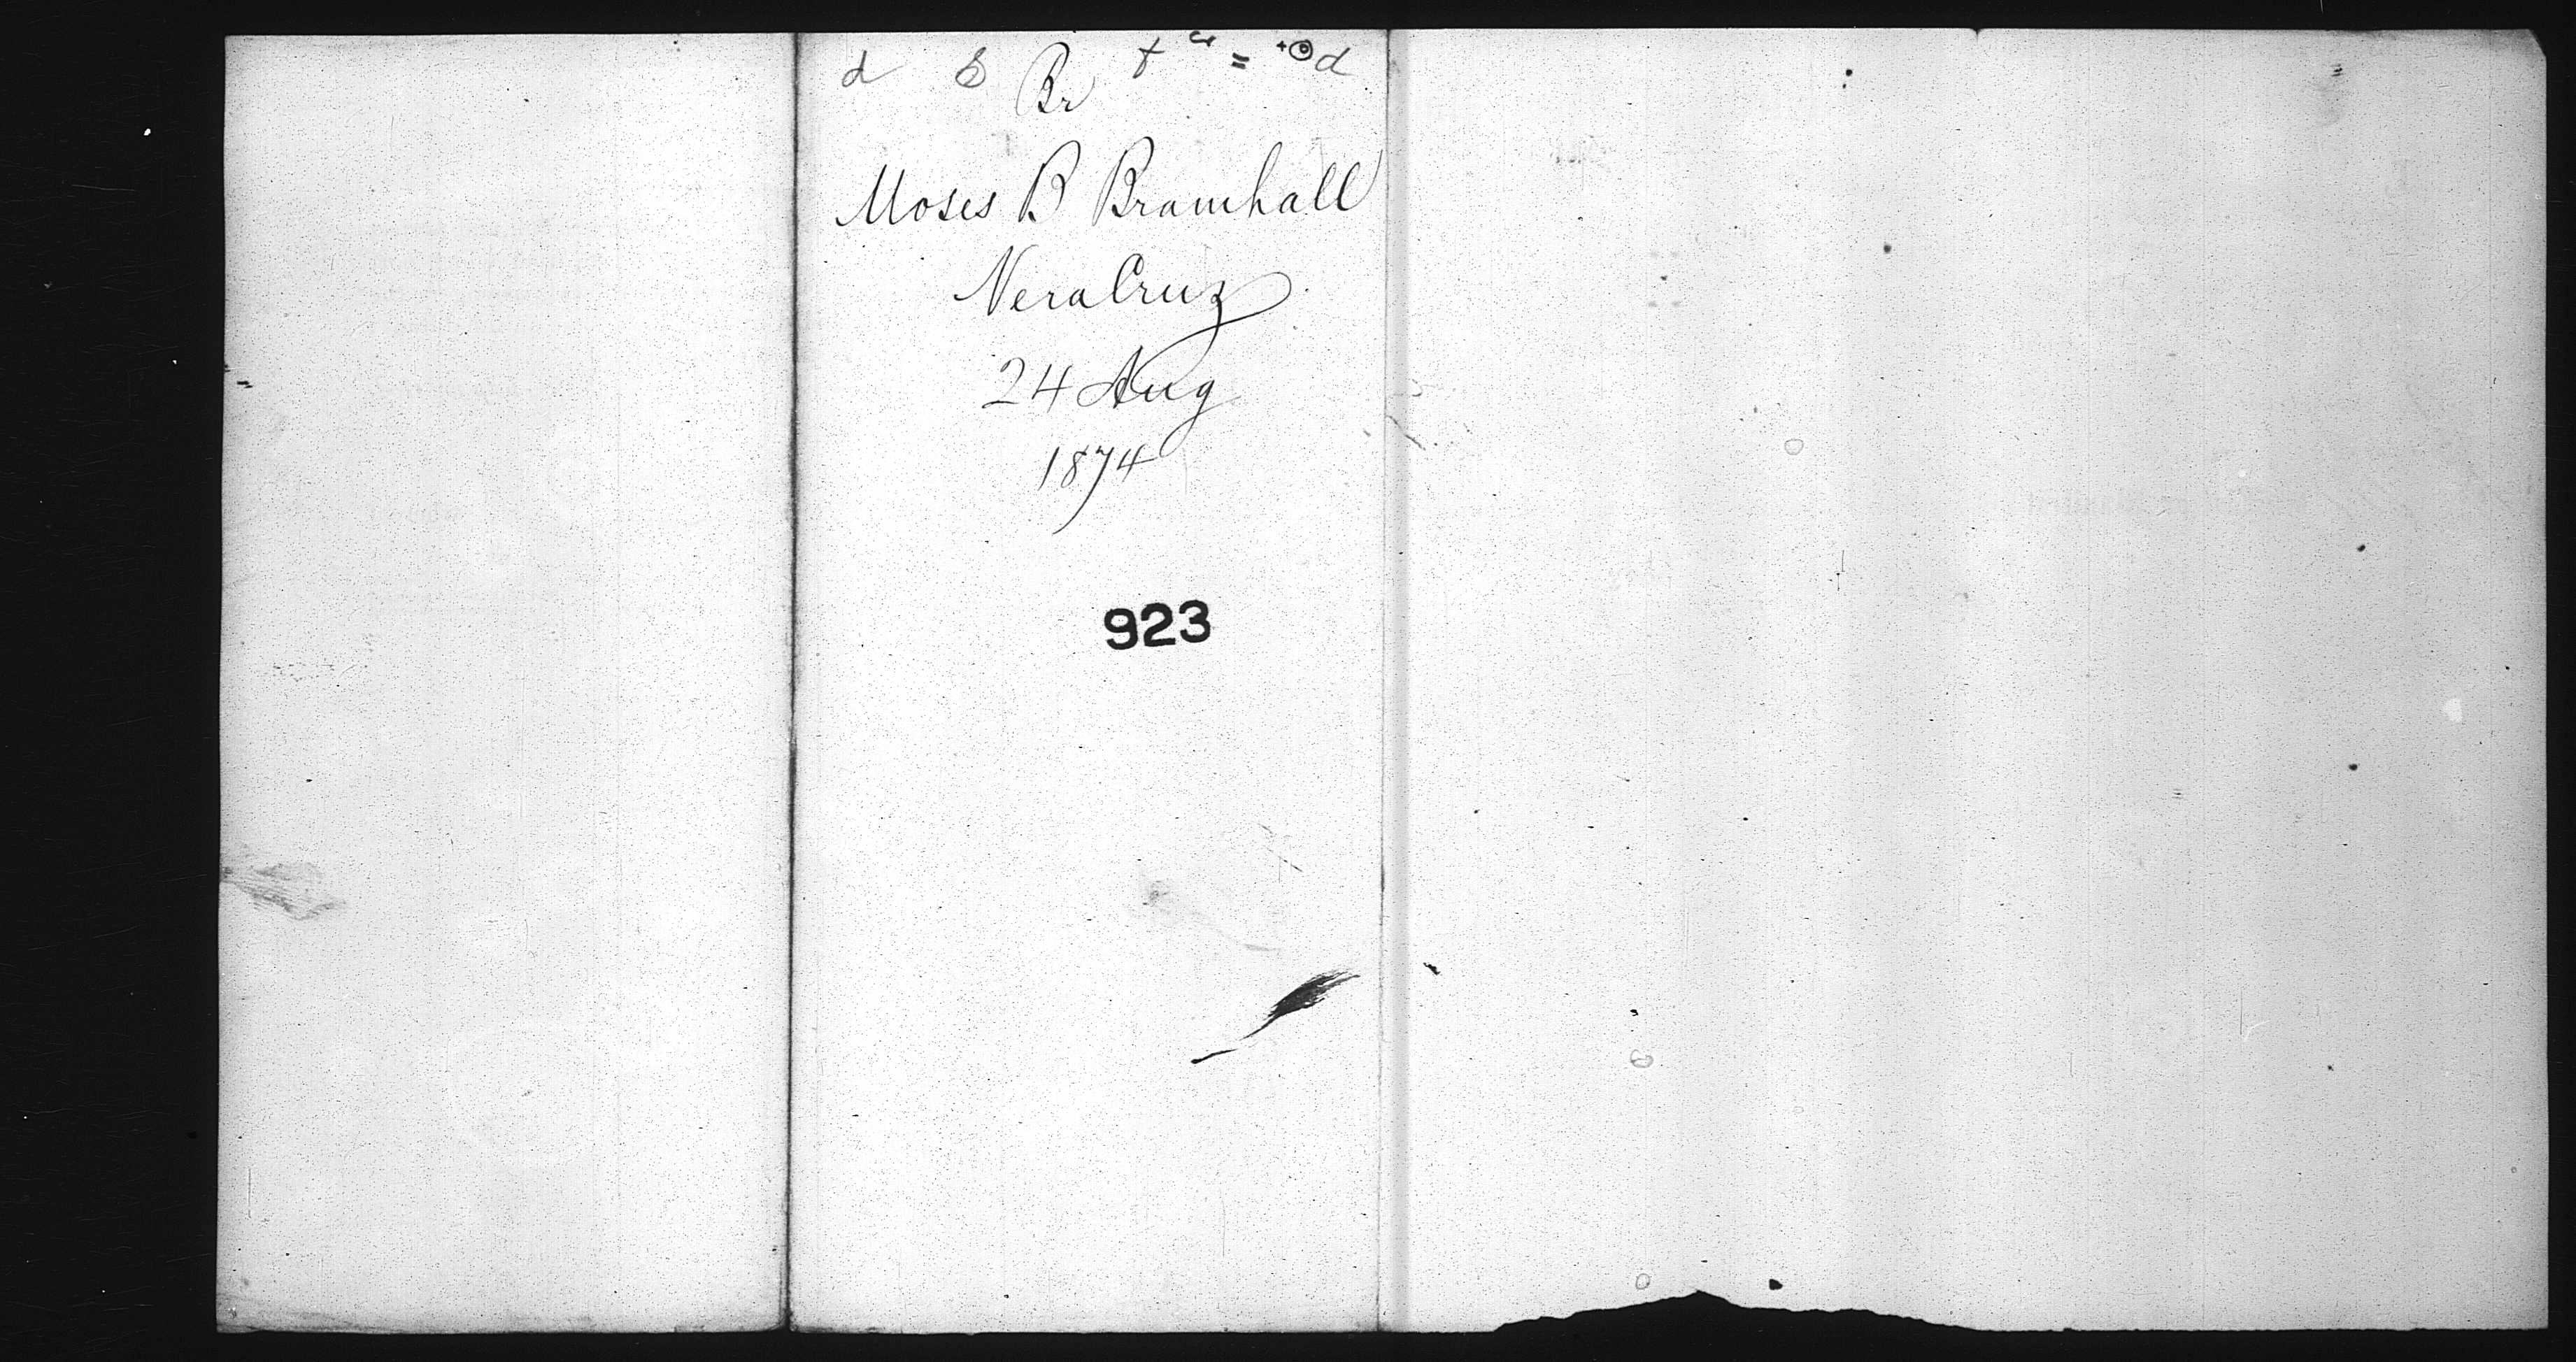 d S Br t = d
Moses B Bramhall
Vera Cruz
24 Aug
1874
923